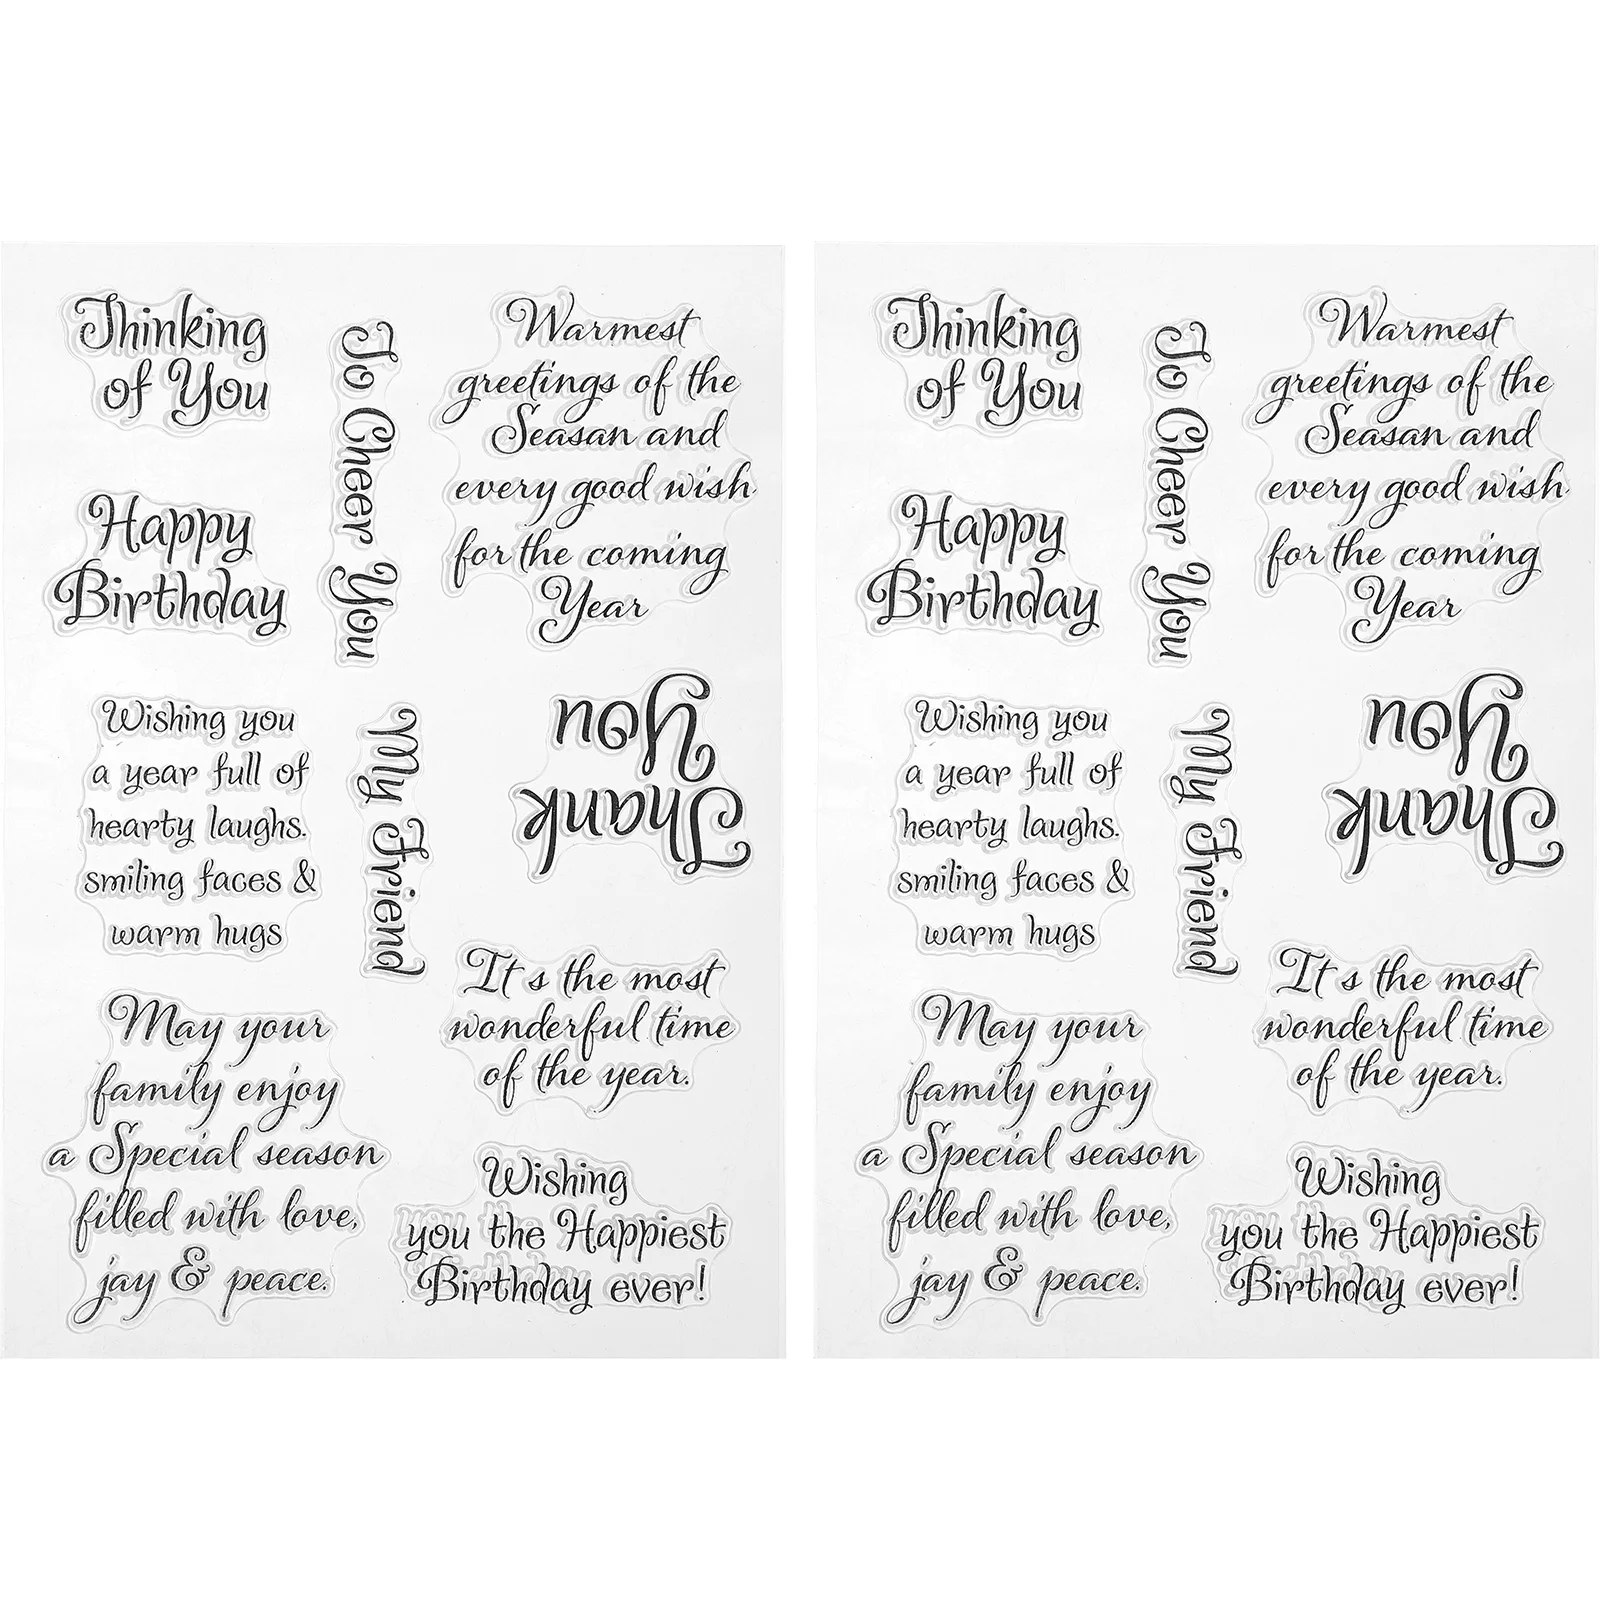 Thinking
of You
To Cheer You
Warmest
greetings of the
Seasan and
every good wish
for the coming
Year
Happy
Birthday
Wishing you
a year full of
hearty laughs.
smiling faces &
warm hugs
My Friend
Thank
you
It s the most
wonderful time
of the year.
May your
family enjoy
a Special season
filled with love,
jay & peace.
Wishing
you the Happiest
Birthday ever!
Thinking
of You
To Cheer You
Warmest
greetings of the
Seasan and
every good wish
for the coming
Year
Happy
Birthday
Wishing you
a year full of
hearty laughs.
smiling faces &
warm hugs
My Friend
Thank
you
It s the most
wonderful time
of the year.
May your
family enjoy
a Special season
filled with love,
jay & peace.
Wishing
you the Happiest
Birthday ever!